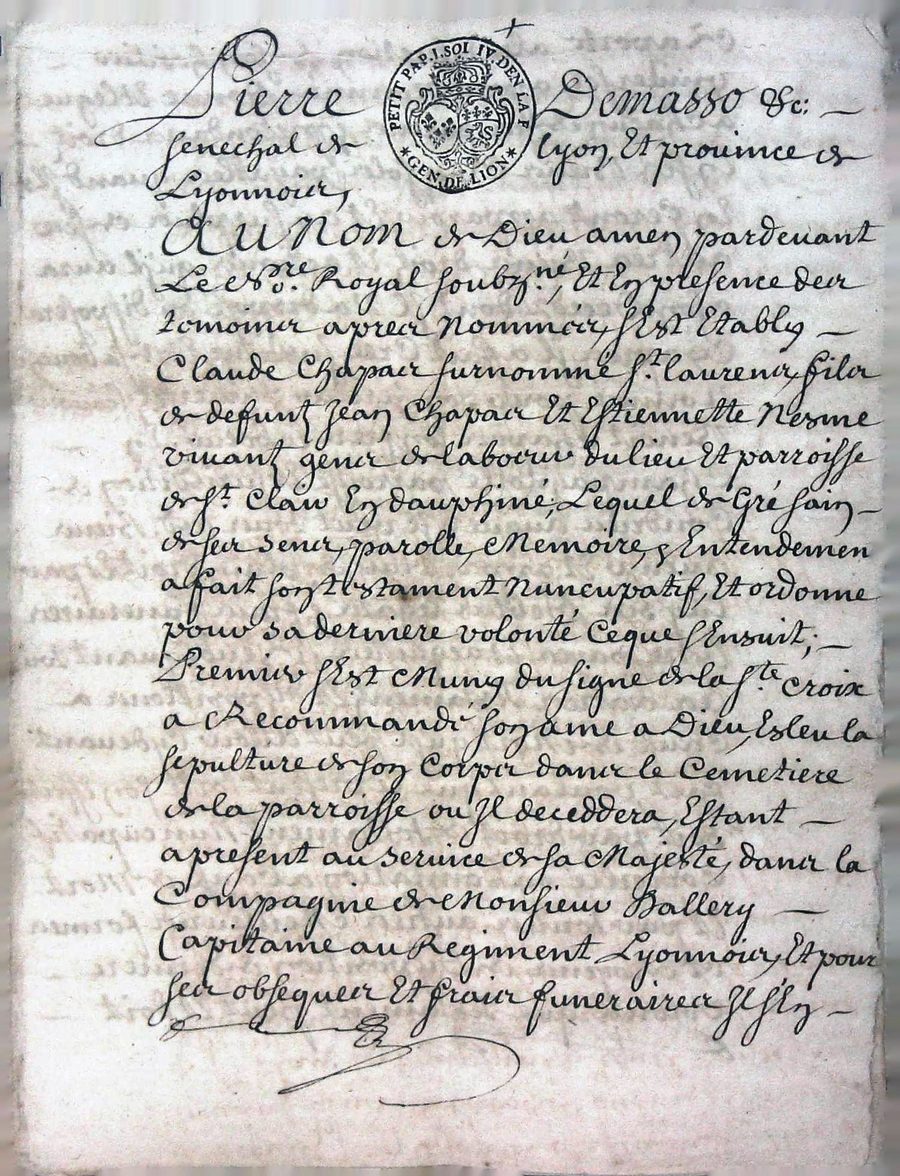 PETIT PAP. I. SOL IV. DEN. LA F
GEN. DE LION
Pierre Demasso &c: —
senechal de Lyon, Et prouince de
Lyonnois,
Au Nom de Dieu amen pardeuant
Le No.re Royal soubz.né, Et En presence des
temoins apres Nommés, s'Est Etably —
Claude Chapas surnommé St. laurens, fils
de defunt Jean Chapas Et Estiennette Nesme
viuant gens de labeur du lieu Et parroisse
de St. Clair En dauphiné, Lequel de Gré sain —
de ses sens, parolle, Memoire, & Entendemen
a fait son testament Nuncupatif, Et ordonne
pour sa derniere volonté Ce que s'Ensuit; —
Premier s'Est Muny du signe de la Ste. Croix
a Recommandé son ame a Dieu, Esleu la
sepulture de son Corps dans le Cemetiere
de la parroisse ou Jl deceddera, Estant —
apresent au service de sa Majesté, dans la
Compagnie de Monsieur Ballery —
Capitaine au Regiment Lyonnois, Et pour
ses obseques Et frais funeraires Jl s'En —